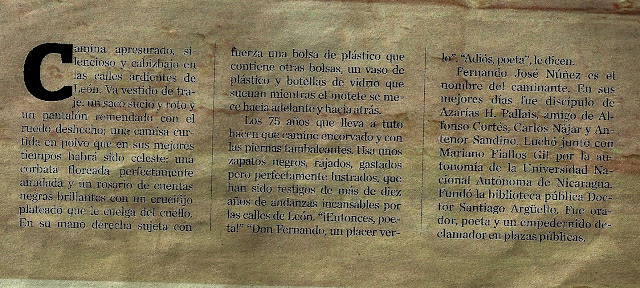 Camina apresurado, si-
lencioso y cabizbajo en
las calles ardientes de
León. Va vestido de tra-
je: un saco sucio y roto y
un pantalón remendado con el
ruedo deshecho; una camisa cur-
tida en polvo que en sus mejores
tiempos habrá sido celeste; una
corbata floreada perfectamente
anudada y un rosario de cuentas
negras brillantes con un crucifijo
plateado que le cuelga del cuello.
En su mano derecha sujeta con
fuerza una bolsa de plástico que
contiene otras bolsas, un vaso de
plástico y botellas de vidrio que
suenan mientras el motete se me-
ce hacia adelante y hacia atrás.
Los 75 años que lleva a tuto
hacen que camine encorvado y con
las piernas tambaleantes. Usa unos
zapatos negros, rajados, gastados
pero perfectamente lustrados, que
han sido testigos de más de diez
años de andanzas incansables por
las calles de León. “¡Entonces, poe-
ta!” “Don Fernando, un placer ver-
lo”. “Adiós, poeta”, le dicen.
Fernando José Núñez es el
nombre del caminante. En sus
mejores días fue discípulo de
Azarías H. Pallais, amigo de Al-
fonso Cortés, Carlos Nájar y An-
tenor Sandino. Luchó junto con
Mariano Fiallos Gil por la au-
tonomía de la Universidad Na-
cional Autónoma de Nicaragua.
Fundó la biblioteca pública Doc-
tor Santiago Argüello. Fue ora-
dor, poeta y un empedernido de-
clamador en plazas públicas.